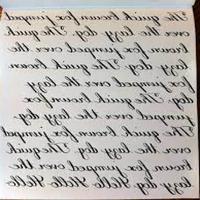 The quick brown fox jumped
over the lazy dog. The quick
brown fox jumped over the
lazy dog. The quick brown
fox jumped over the lazy
dog. The quick brown fox
jumped over the lazy dog.
The quick brown fox jumped
over the lazy dog. The quick
brown fox jumped over the
lazy dog Hello Hello Hello